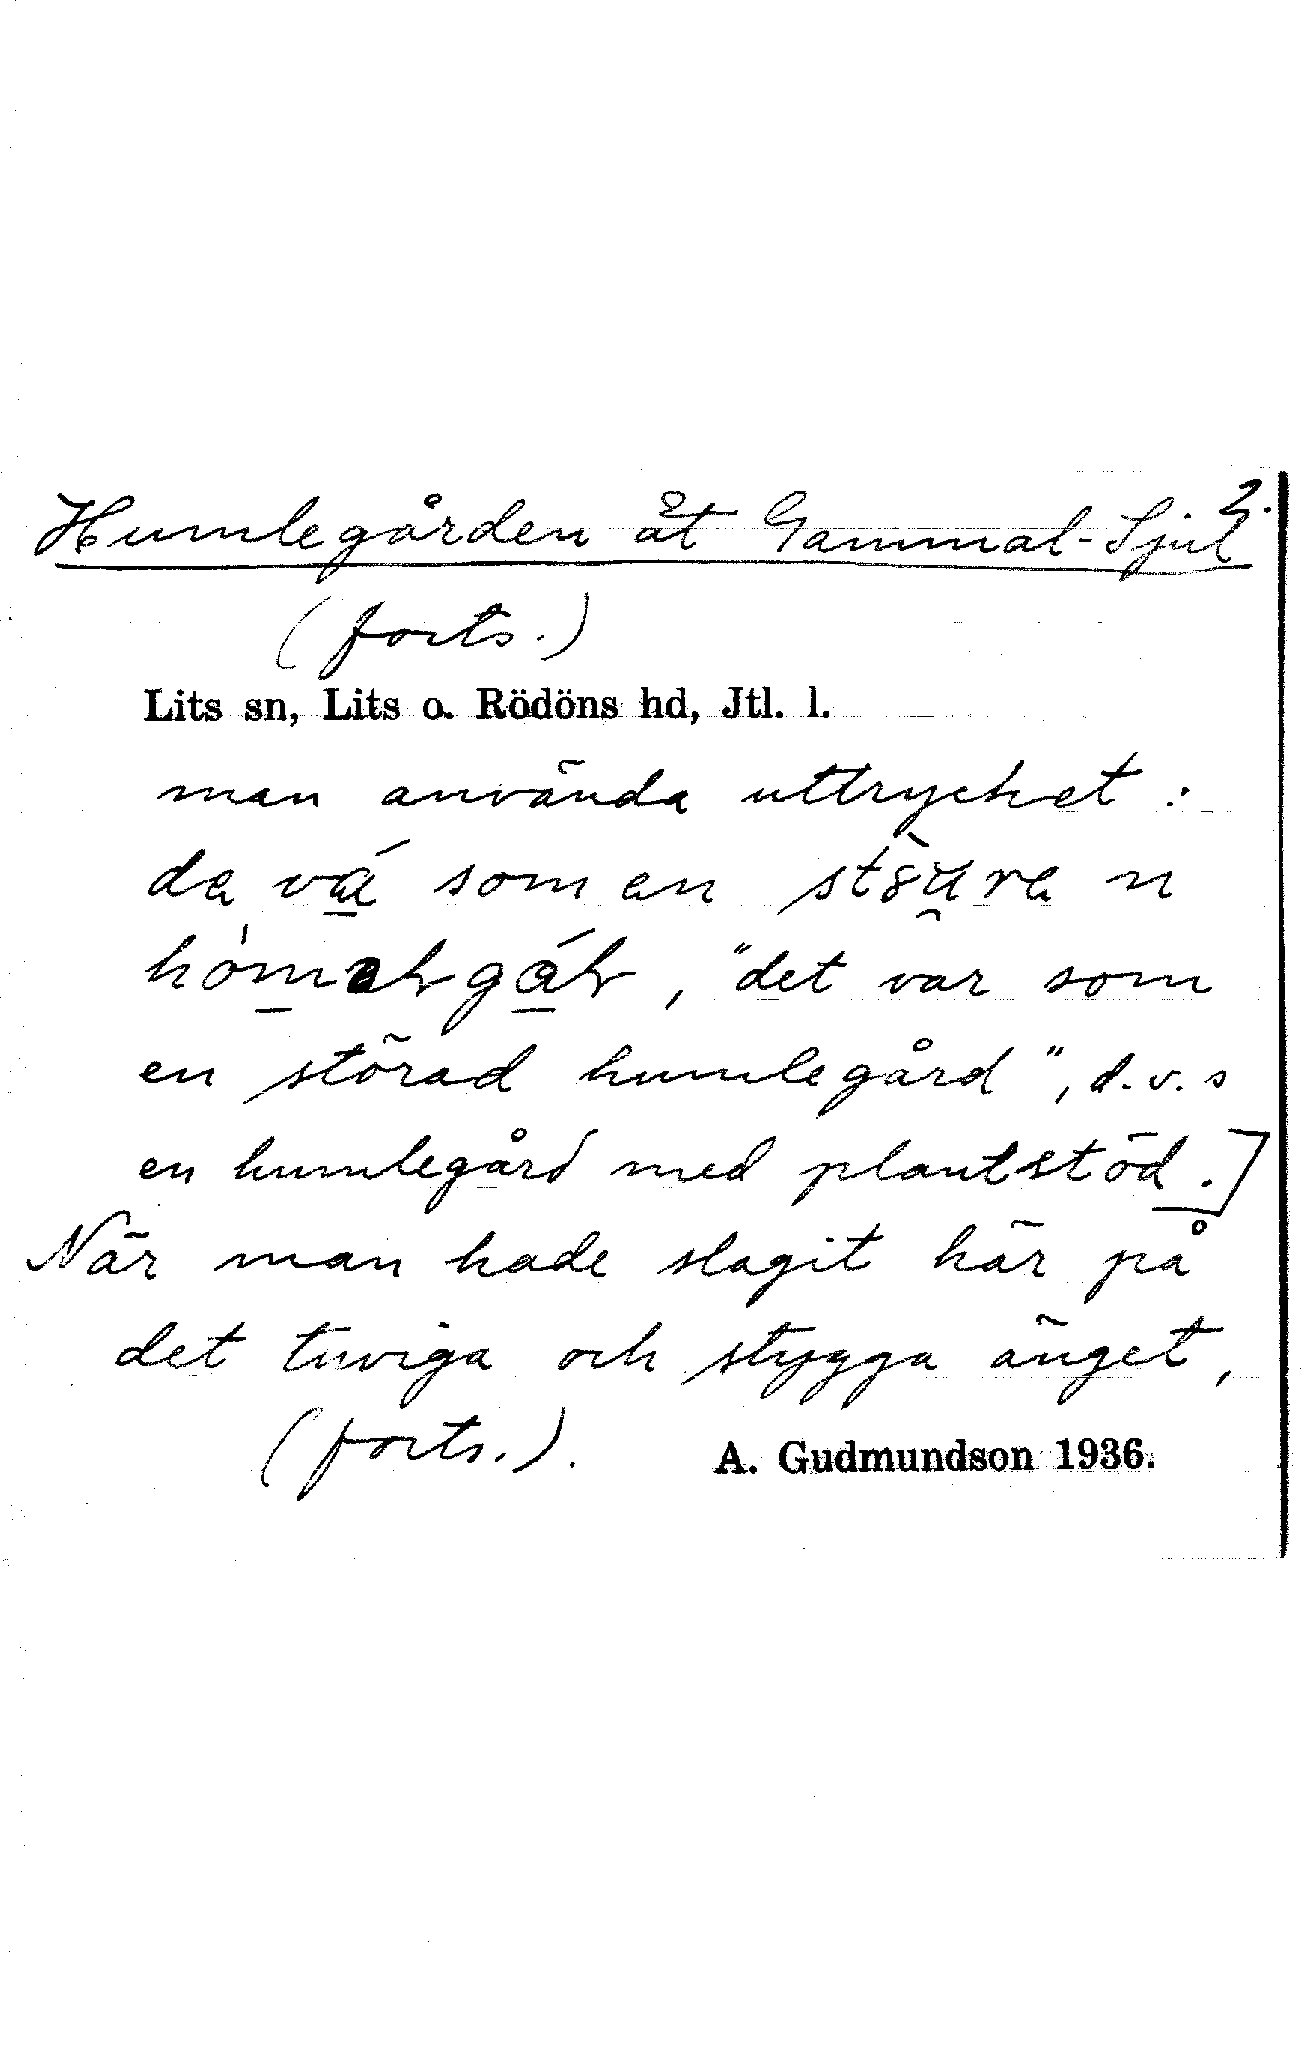 2.
Humlegården åt Gammal-Sjul
(forts.)
Lits sn, Lits o. Rödöns hd, Jtl. l.
man använda uttrycket:
da vá som en
, "det var som
en störad humlegård", d.v.s
en humlegård med plantstöd.]
När man hade slagit här på
det tuviga och stygga änget,
(forts.).
A. Gudmundson 1936.